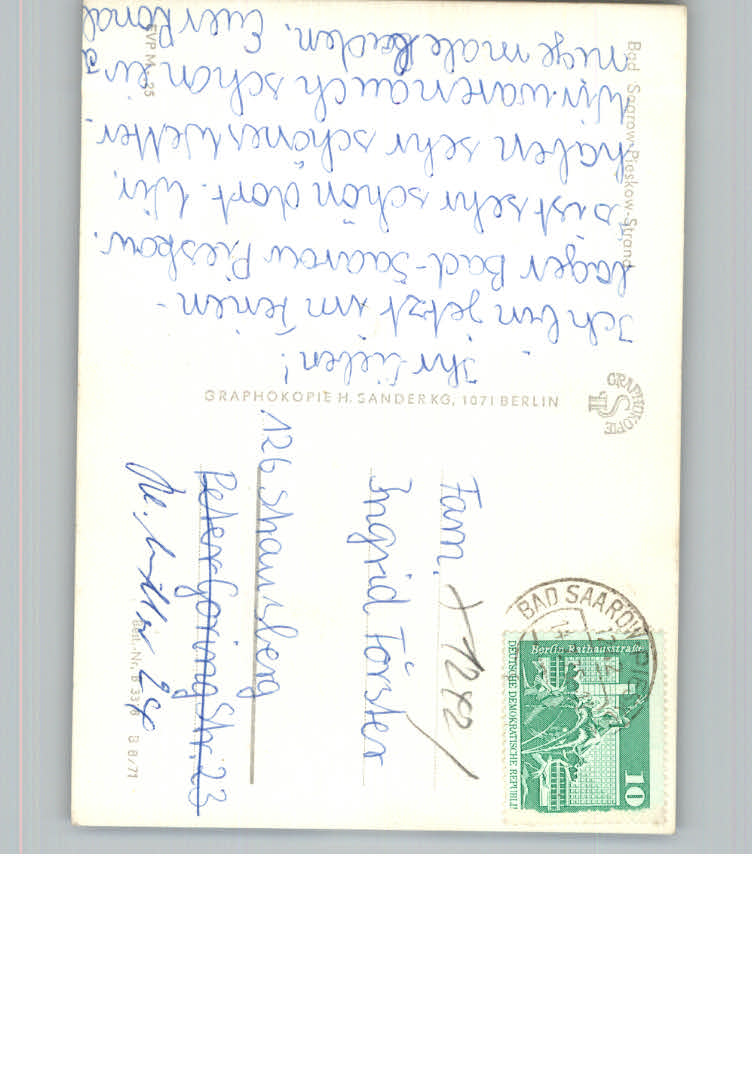 Bad Saarow-Pieskow-Strand
Ihr Lieben!
Ich bin jetzt im Ferien-
lager Bad-Saarow Pieskow.
Es ist sehr schön dort. Wir
haben sehr schönes Wetter.
Wir waren auch schon ei
nige male baden. Euer Ronal
d
EVP M -,25
GRAPHOKOPIE H. SANDER KG, 1071 BERLIN
GRAPHOKOPIE
BAD SAAROW-PI
Berlin Rathausstraße
DEUTSCHE DEMOKRATISCHE REPUBLIK
10
Fam.
1242
Ingrid Förster
126 Strausberg
Peter-Göring Str. 23
Best.-Nr. B 33/8 G 8/71